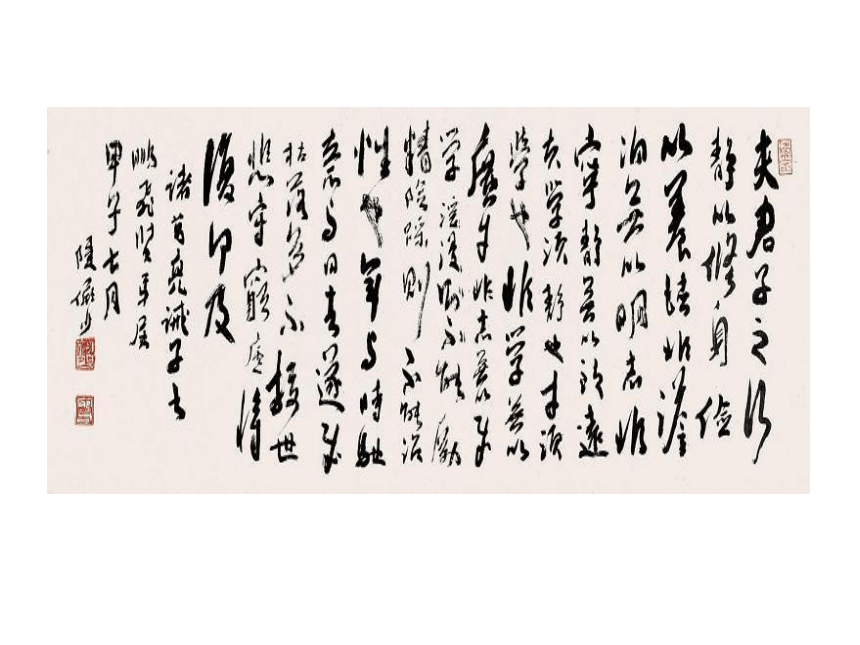 夫君子之行
静以修身俭
以养德非澹
泊无以明志非
宁静无以致远
夫学须静也才须
学也非学无以
广才非志无以成
学淫漫则不能励
精险躁则不能治
性也年与时驰
意与日去遂成
枯落多不接世
悲守穷庐将
复何及
诸葛亮诫子书
鹏飞贤弟属
甲子七月
陆俨少